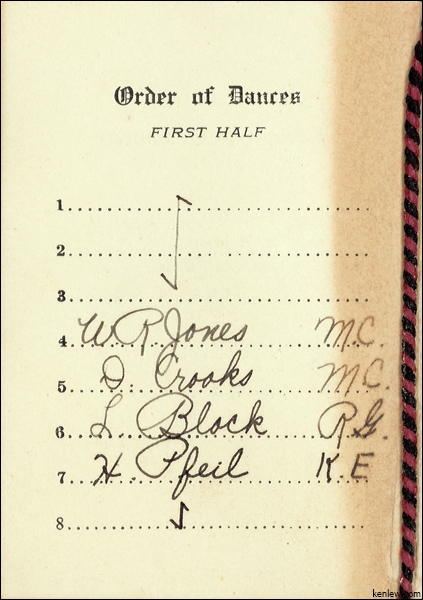 Order of Dances
FIRST HALF
1
2
3
4 W R Jones M.C.
5 D. Crooks M.C.
6 L. Block R.G.
7 H. Pfeil K E
8
kenlew.com